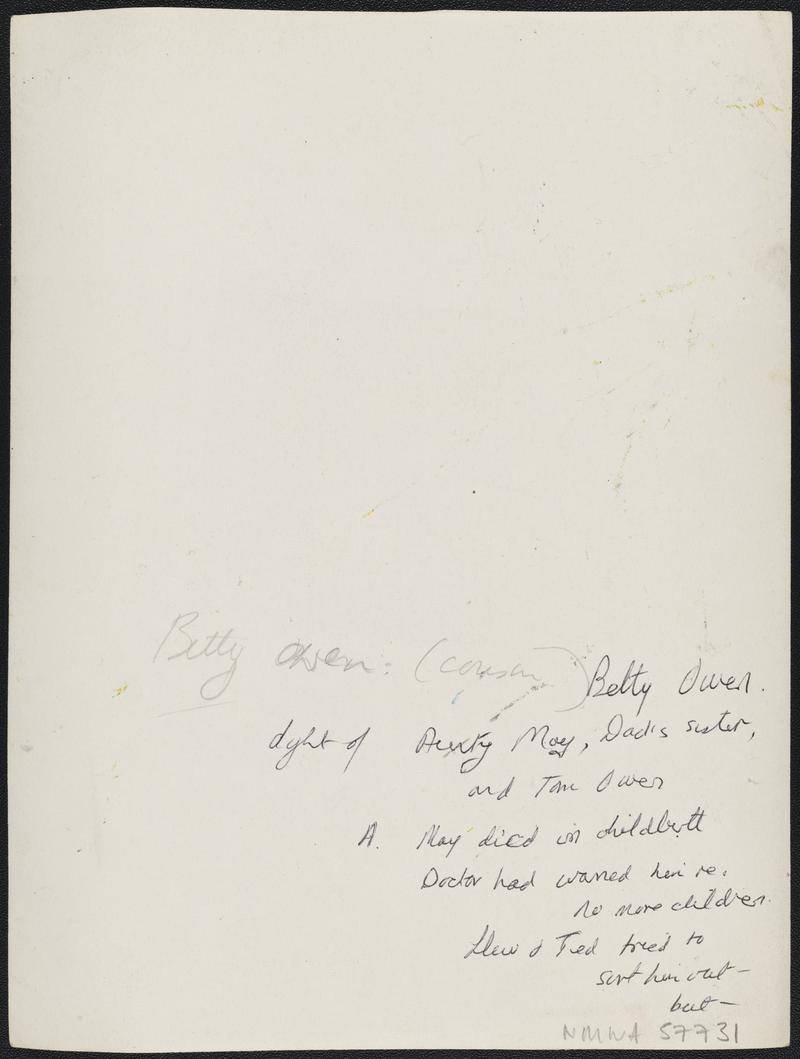 Betty Owen: (cousin)
Betty Owen.
dght of Aunty May, Dad's sister,
and Tom Owen
A. May died in childbirth
Doctor had warned him re.
no more children.
Llew & Ted tried to
sort him out –
but –
NMWA 57731